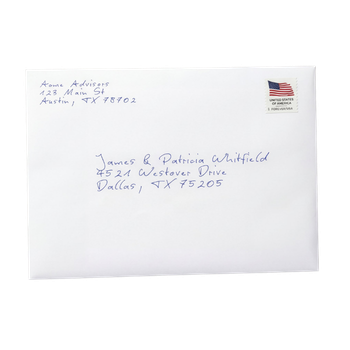 Acme Advisors
123 Main St
Austin, TX 78702
UNITED STATES
OF AMERICA
James & Patricia Whitfield
4521 Westover Drive
Dallas, TX 75205